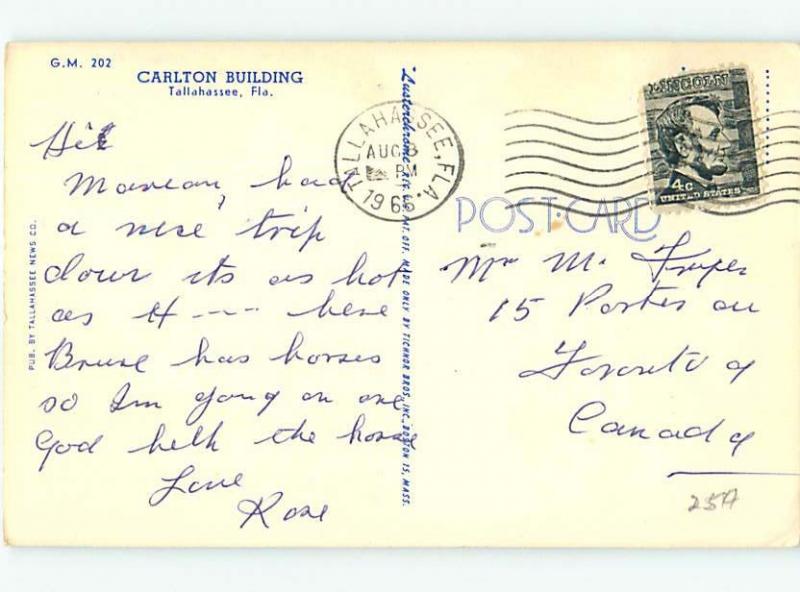 G.M. 202
CARLTON BUILDING
Tallahassee, Fla.
Hi
Maxean, had
a nice trip
down its as hot
as H---- here
Bruse has horses
so Im going on one
God helk the horse
Love
Rose
PUB. BY TALLAHASSEE NEWS CO.
"Lusterchrome" REG. U.S. PAT. OFF. MADE ONLY BY TICHNOR BROS., INC., BOSTON 15, MASS.
TALLAHASSEE, FLA.
AUG 8
PM
196
LINCOLN
4c
UNITED STATES
POST-CARD
Mr M. Fryer
15 Porter au
Toronto
Canada
25A